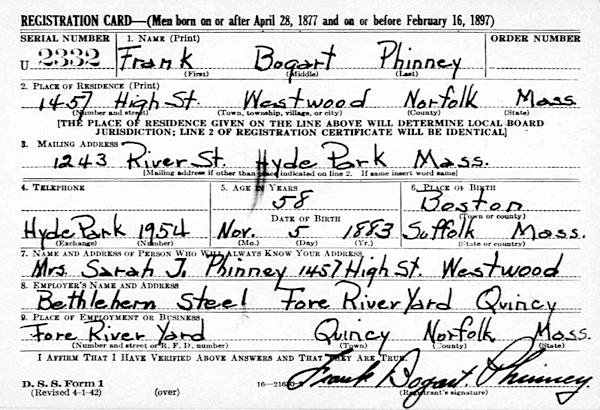 REGISTRATION CARD—(Men born on or after April 28, 1877 and on or before February 16, 1897)
SERIAL NUMBER 1. NAME (Print) ORDER NUMBER
U 2332 Frank Bogart Phinney
(First) (Middle) (Last)
2. PLACE OF RESIDENCE (Print)
1457 High St. Westwood Norfolk Mass.
(Number and street) (Town, township, village, or city) (County) (State)
[THE PLACE OF RESIDENCE GIVEN ON THE LINE ABOVE WILL DETERMINE LOCAL BOARD
JURISDICTION; LINE 2 OF REGISTRATION CERTIFICATE WILL BE IDENTICAL]
3. MAILING ADDRESS
1243 River St. Hyde Park Mass.
[Mailing address if other than place indicated on line 2. If same insert word same]
4. TELEPHONE 5. AGE IN YEARS 6. PLACE OF BIRTH
58 Boston
DATE OF BIRTH (Town or county)
Hyde Park 1954 Nov. 5 1883 Suffolk Mass.
(Exchange) (Number) (Mo.) (Day) (Yr.) (State or country)
7. NAME AND ADDRESS OF PERSON WHO WILL ALWAYS KNOW YOUR ADDRESS
Mrs. Sarah J. Phinney 1457 High St. Westwood
8. EMPLOYER'S NAME AND ADDRESS
Bethlehem Steel Fore River Yard Quincy
9. PLACE OF EMPLOYMENT OR BUSINESS
Fore River Yard Quincy Norfolk Mass.
(Number and street or R. F. D. number) (Town) (County) (State)
I AFFIRM THAT I HAVE VERIFIED ABOVE ANSWERS AND THAT THEY ARE TRUE.
Frank Bogart Phinney
D. S. S. Form 1
(Revised 4-1-42) (over) (Registrant's signature)